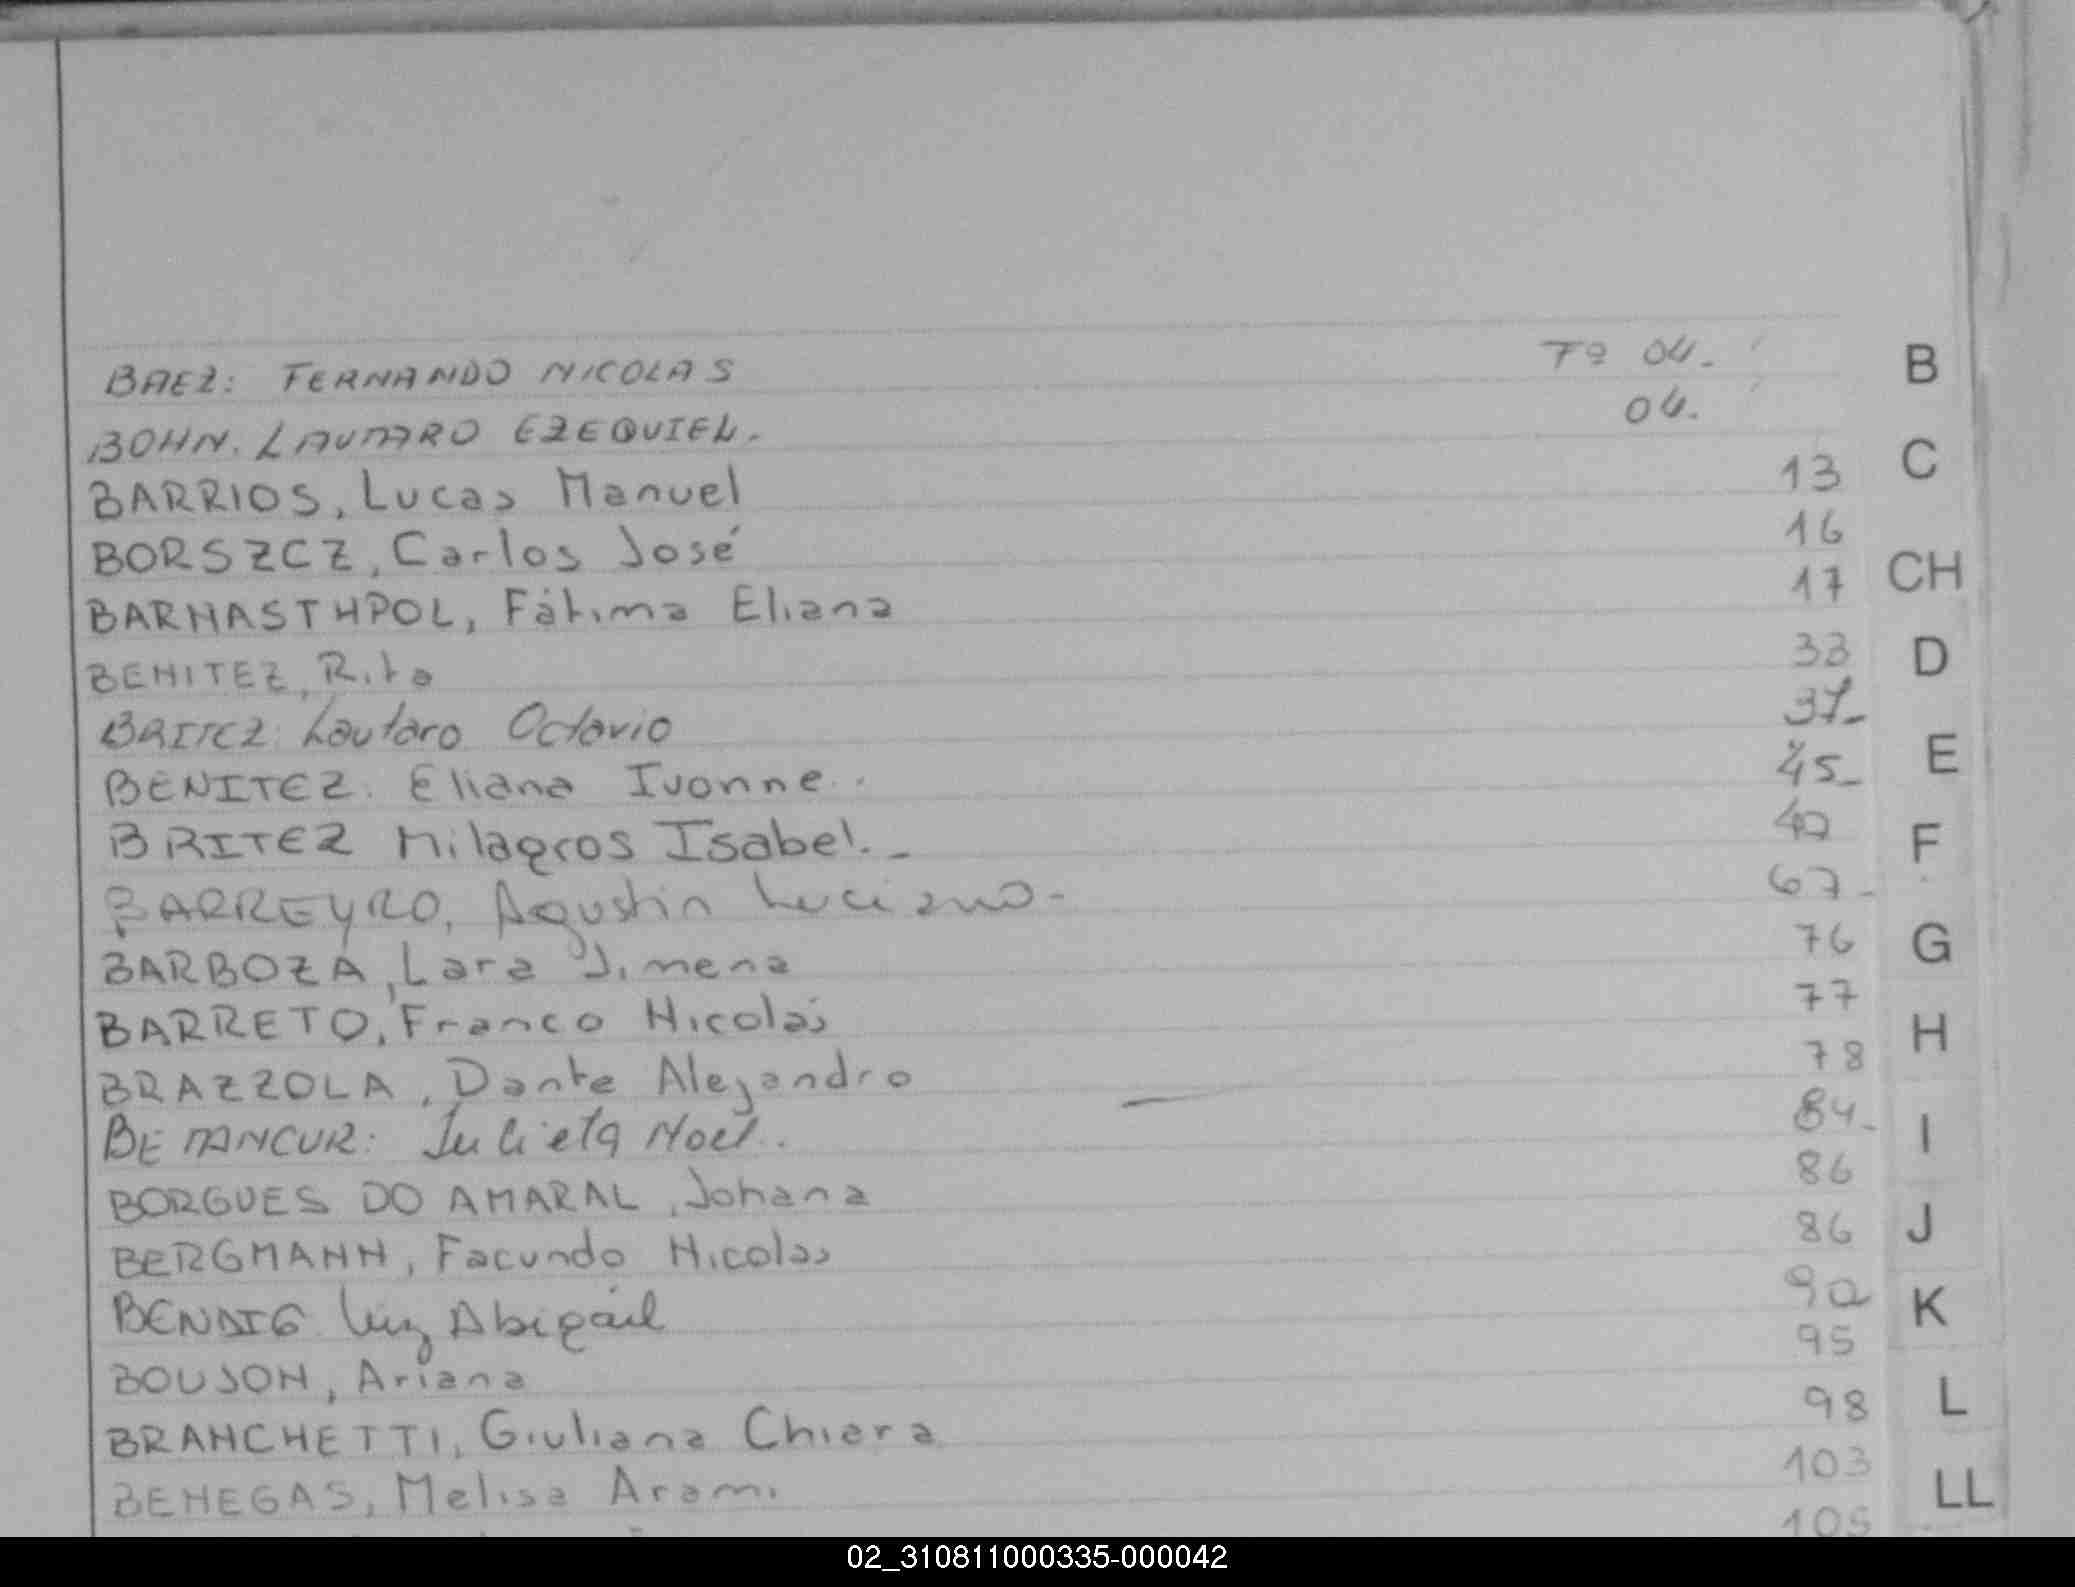 BAEZ: FERNANDO NICOLAS Fº 04.
BOHN. LAUTARO EZEQUIEL. 04.
BARRIOS, Lucas Manuel 13
BORSZCZ, Carlos José 16
BARNASTHPOL, Fátima Eliana 17
BENITEZ, Rita 33
BRITEZ: Lautaro Octavio 37-
BENITEZ. Eliana Ivonne.. 45-
BRITEZ Milagros Isabel.-
BARREYRO, Agustin Luciano- 67-
BARBOZA, Lara Jimena 76
BARRETO, Franco Nicolás 77
BRAZZOLA, Dante Alejandro 78
BETANCUR: Julieta Noel.. 84-
BORGUES DO AMARAL, Johana 86
BERGMANN, Facundo Nicolas 86
BENDIG Luz Abigail 90
BOUJON, Ariana 95
BRANCHETTI, Giuliana Chiara 98
BENEGAS, Melisa Arami 103
105
B
C
CH
D
E
F
G
H
I
J
K
L
LL
02_310811000335-000042